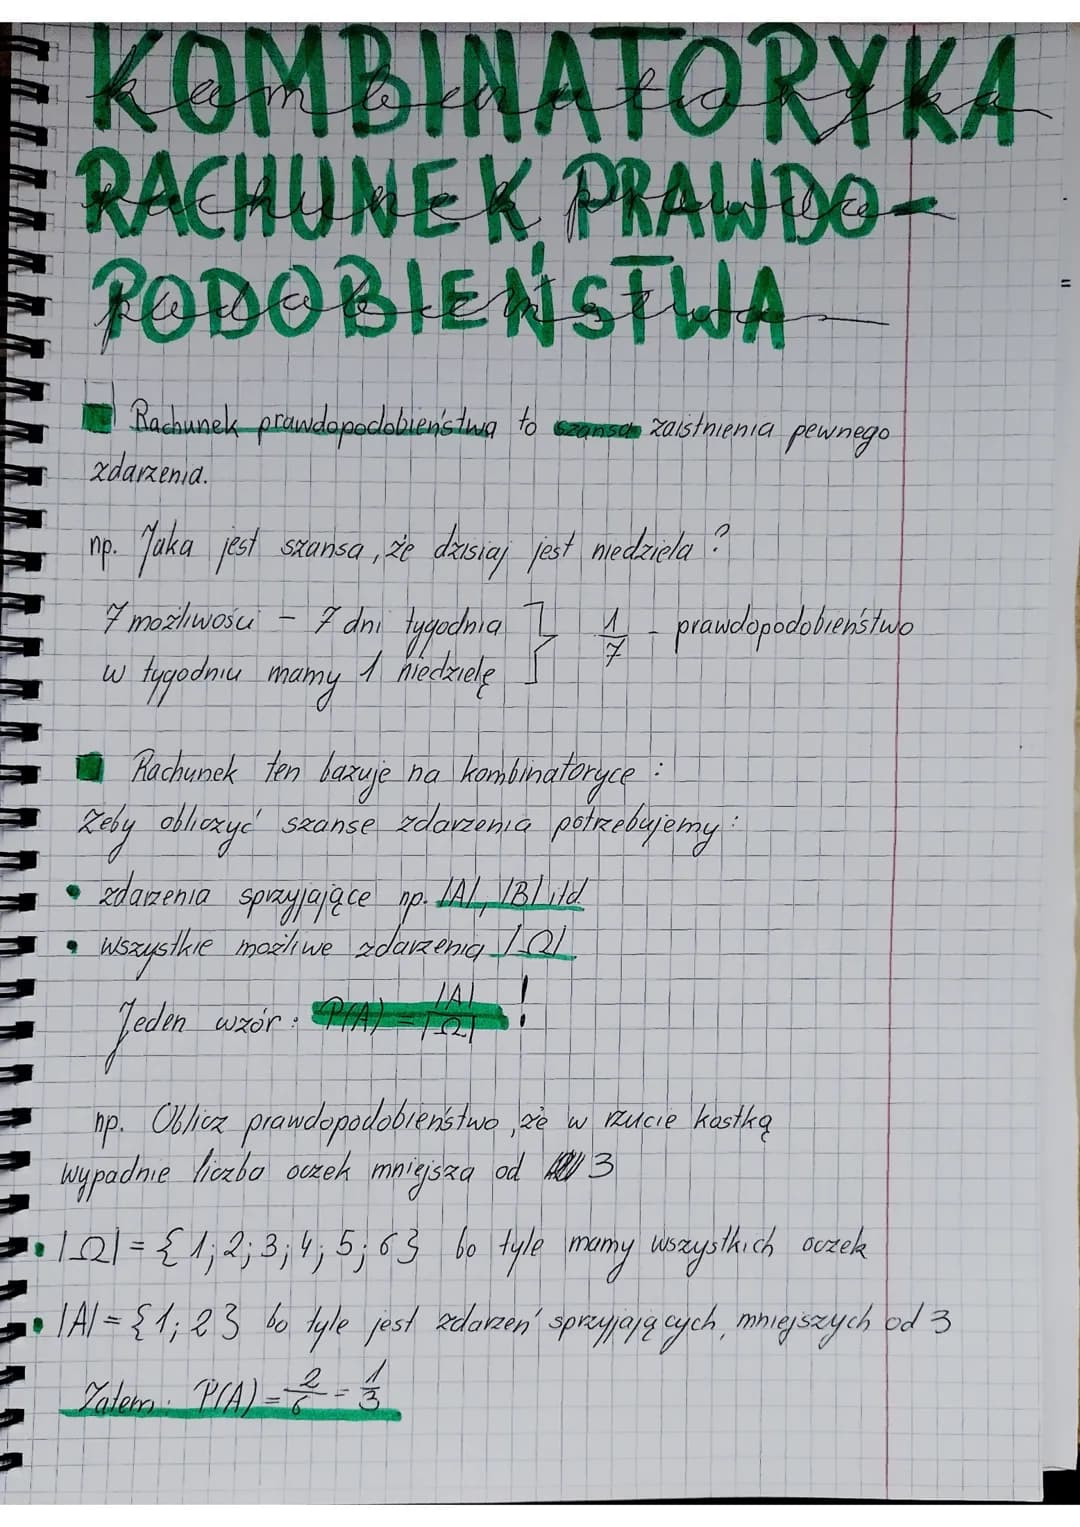 KOMBINATORYKA
kombinatoryka
RACHUNEK PRAWDO-
rachunek prawdo-
PODOBIEŃSTWA
podobieństwa
Rachunek prawdopodobieństwa to szansa zaistnienia pewnego
zdarzenia.
np. Jaka jest szansa, że dzisiaj jest niedziela?
7 możliwości - 7 dni tygodnia } 1/7 - prawdopodobieństwo
w tygodniu mamy 1 niedzielę
Rachunek ten bazuje na kombinatoryce:
Żeby obliczyć szanse zdarzenia potrzebujemy:
• zdarzenia sprzyjające np. |A|, |B| itd.
• wszystkie możliwe zdarzenia |Ω|
Jeden wzór: P(A) = |A|/|Ω| !
np. Oblicz prawdopodobieństwo, że w rzucie kostką
wypadnie liczba oczek mniejsza od 3
• |Ω| = {1; 2; 3; 4; 5; 6} bo tyle mamy wszystkich oczek
• |A| = {1; 2} bo tyle jest zdarzeń sprzyjających, mniejszych od 3
Zatem: P(A) = 2/6 = 1/3